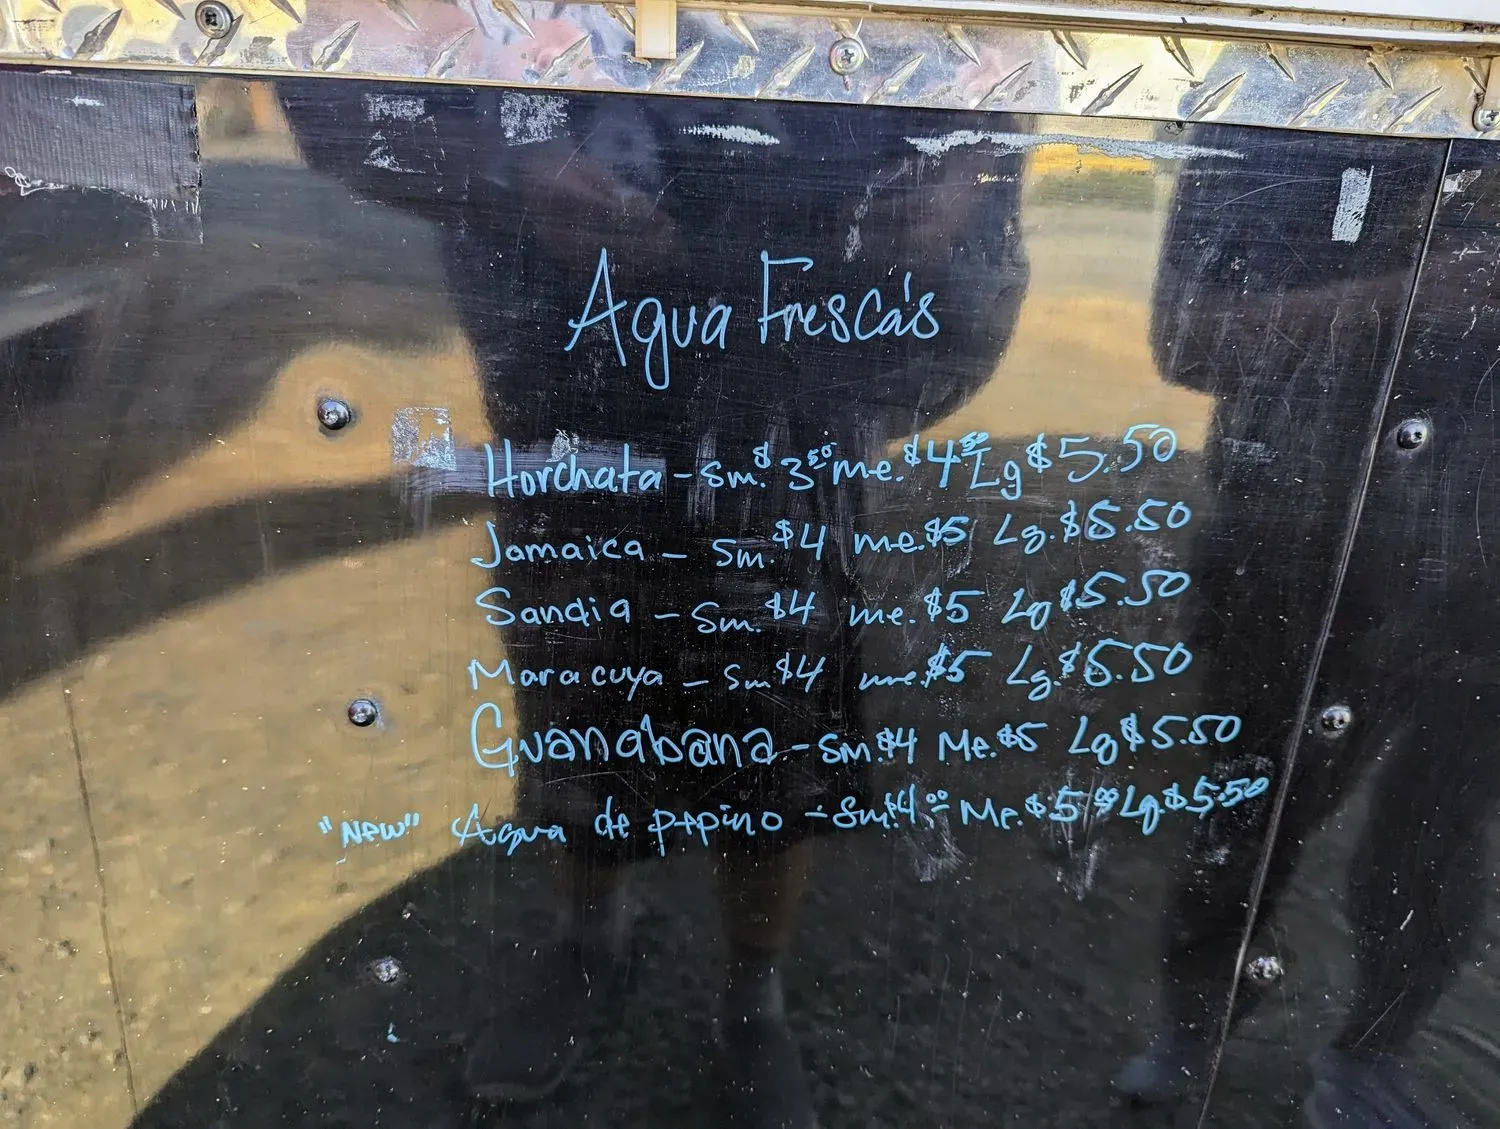 Agua Fresca's
Horchata - Sm. $3.50 me. $4.50 Lg $5.50
Jamaica - Sm. $4 me. $5 Lg. $5.50
Sandia - Sm. $4 me. $5 Lg $5.50
Maracuya - Sm $4 me. $5 Lg. $5.50
Guanabana - Sm. $4 Me. $5 Lg $5.50
"New" Agua de pepino - Sm. $4.00 Me. $5.00 Lg. $5.50